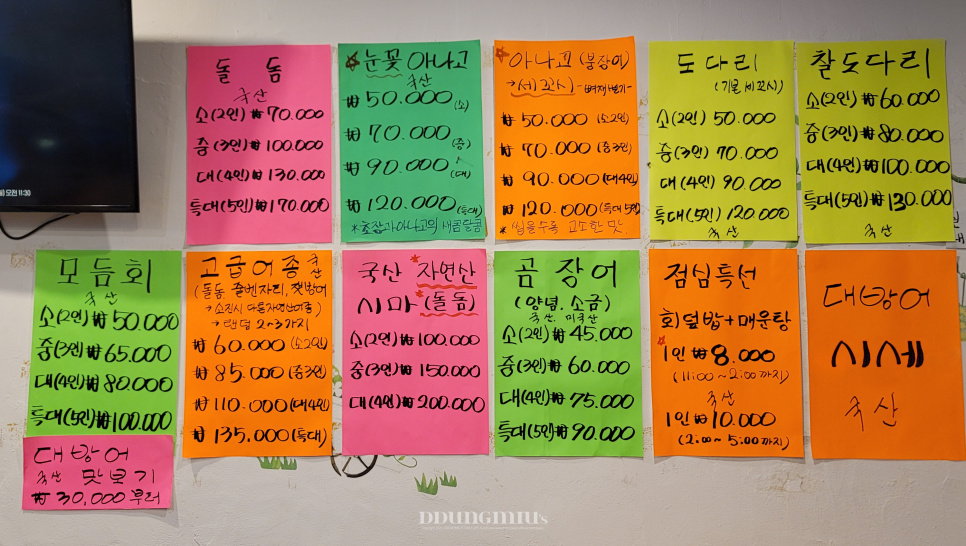 오전 11:30
돌 돔
국산
소(2인) ₩ 70.000
중(3인) ₩ 100.000
대(4인) ₩ 130.000
특대(5인) ₩ 170.000
눈꽃 아나고
국산
₩ 50.000 (소)
₩ 70.000 (중)
₩ 90.000 (대)
₩ 120.000 (특대)
*초장과 아나고의 새콤달콤
아나고 (붕장어)
→ (세꼬시)
₩ 50.000 (소2인)
₩ 70.000 (중3인)
₩ 90.000 (대4인)
₩ 120.000 (특대5인)
* 씹을수록 고소한 맛
도다리
(기본 세꼬시)
소(2인) 50.000
중(3인) 70.000
대(4인) 90.000
특대(5인) 120.000
국산
참도다리
소(2인) ₩ 60.000
중(3인) ₩ 80.000
대(4인) ₩ 100.000
특대(5인) ₩ 130.000
국산
모듬회
국산
소(2인) ₩ 50.000
중(3인) ₩ 65.000
대(4인) ₩ 80.000
특대(5인) ₩ 100.000
대방어
국산 맛보기
₩ 30,000 부터
고급어종 국산
(돌돔 줄벤자리, 잿방어
→ 소진시 다른자연산어종)
→ 랜덤 2~3가지
₩ 60.000 (소2인)
₩ 85.000 (중3인)
₩ 110.000 (대4인)
₩ 135.000 (특대)
국산 자연산
시마 (돌돔)
소(2인) ₩ 100.000
중(3인) ₩ 150.000
대(4인) ₩ 200.000
곰장어
(양념. 소금)
국산. 미국산
소(2인) ₩ 45.000
중(3인) ₩ 60.000
대(4인) ₩ 75.000
특대(5인) ₩ 90.000
점심특선
회덮밥 + 매운탕
1인 ₩ 8.000
(11:00 ~ 2:00 까지)
국산
1인 ₩ 10.000
(2:00 ~ 5:00 까지)
대방어
시세
국산
DDUNGMIUs